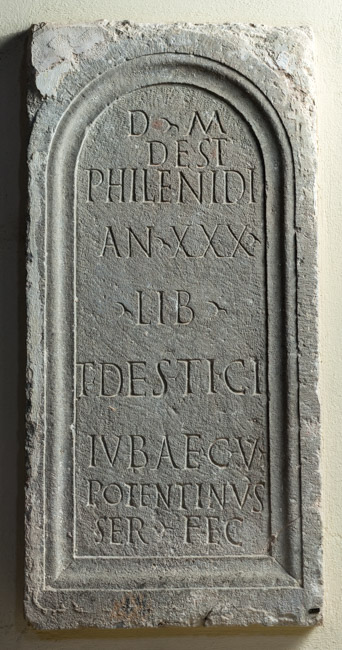 D M
DEST
PHILENIDI
AN XXX
LIB
T·DES·TI·CI
IVBAE·C·V·
POTENTINVS
SER FEC